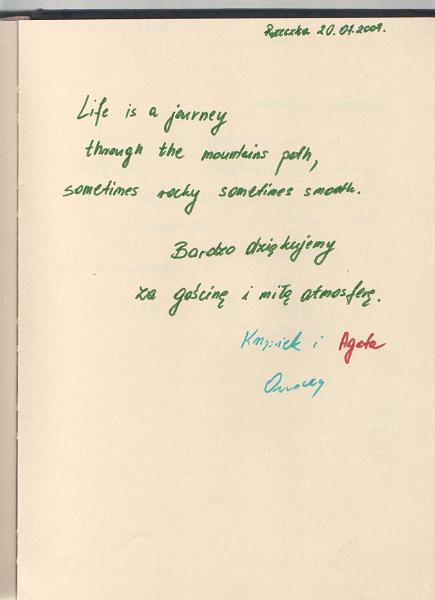 Rzeczka 20.01.2009.
Life is a journey
through the mountains path,
sometimes rocky sometimes smooth.
Bardzo dziękujemy
za gościnę i miłą atmosferę.
i Agata